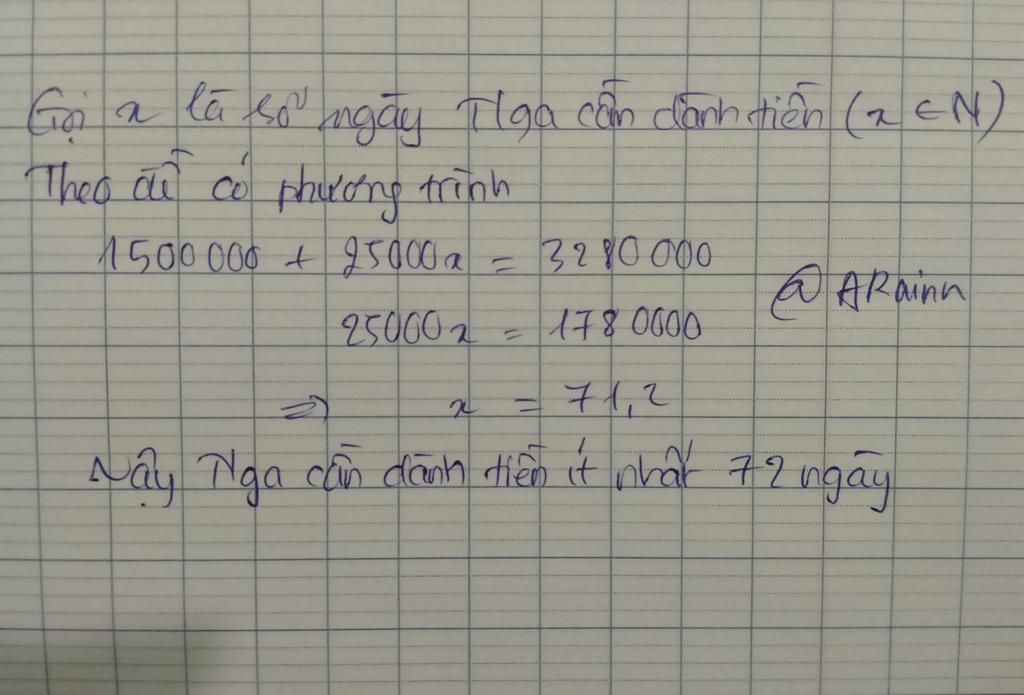 Gọi x là số ngày Nga cần dành tiền (x ∈ N)
Theo đề có phương trình
1500 000 + 25000x = 3280 000
@ARainn
25000x = 178 0000
=> x = 71,2
Vậy Nga cần dành tiền ít nhất 72 ngày